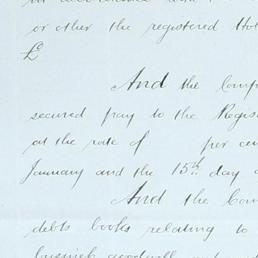 or other the registered Hol
£
And the Comp
secured pay to the Regis
at the rate of per cen
January and the 15th day o
And the Com
debts books relating to
business goodwill